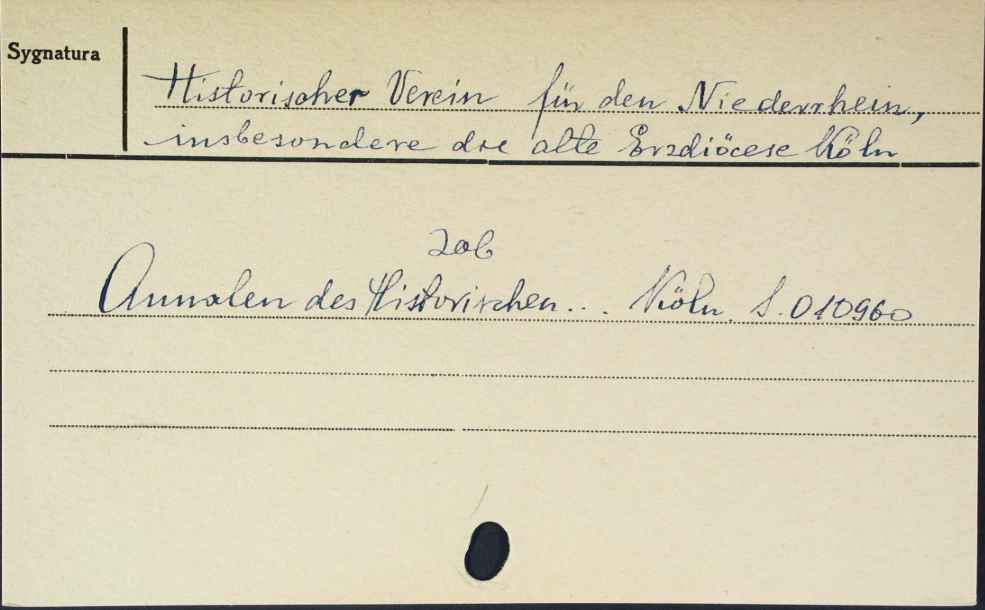 Sygnatura
Historischer Verein für den Niederrhein,
insbesondere die alte Erzdiöcese Köln
zob
Annalen des Historischen... Köln. S. 010960